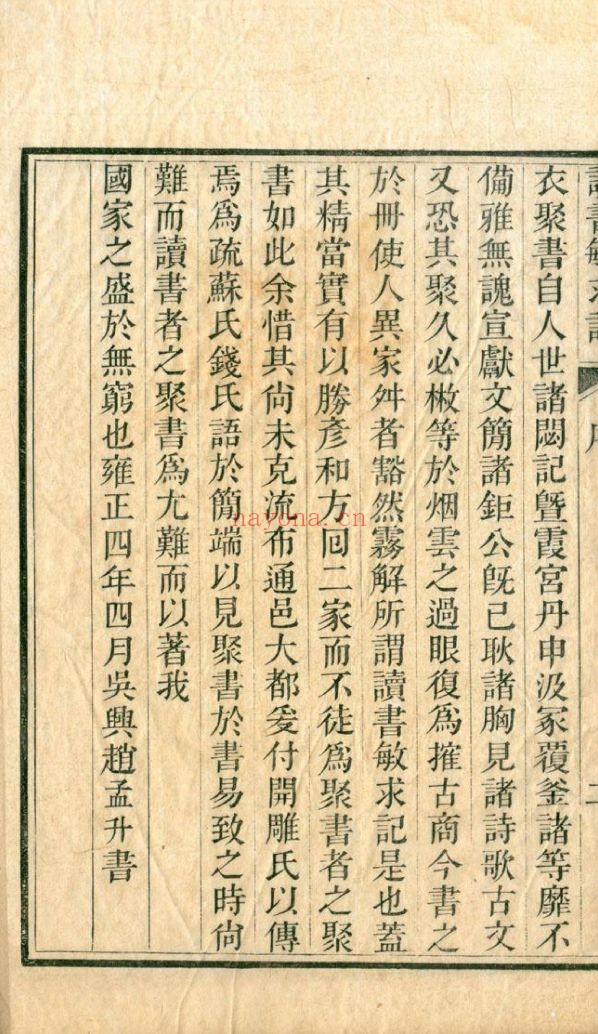 衣聚書自人世諸閟記曁霞宮丹申汲冢覆釜諸等靡不
備雅無謉宣獻文簡諸鉅公旣已耿諸胸見諸詩歌古文
又恐其聚久必㪚等於烟雲之過眼復爲搉古商今書之
於冊使人異家舛者豁然霧解所謂讀書敏求記是也蓋
其精當實有以勝彥和方回二家而不徒爲聚書者之聚
書如此余惜其尙未克流布通邑大都爰付開雕氏以傳
焉爲疏蘇氏錢氏語於簡端以見聚書於書易致之時尙
難而讀書者之聚書爲尤難而以著我
國家之盛於無窮也雍正四年四月吳興趙孟升書
nayona.cn